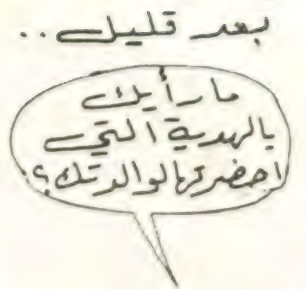 بعد قليل..
ما رأيك
بالهدية التي
احضرتها لوالدتك؟